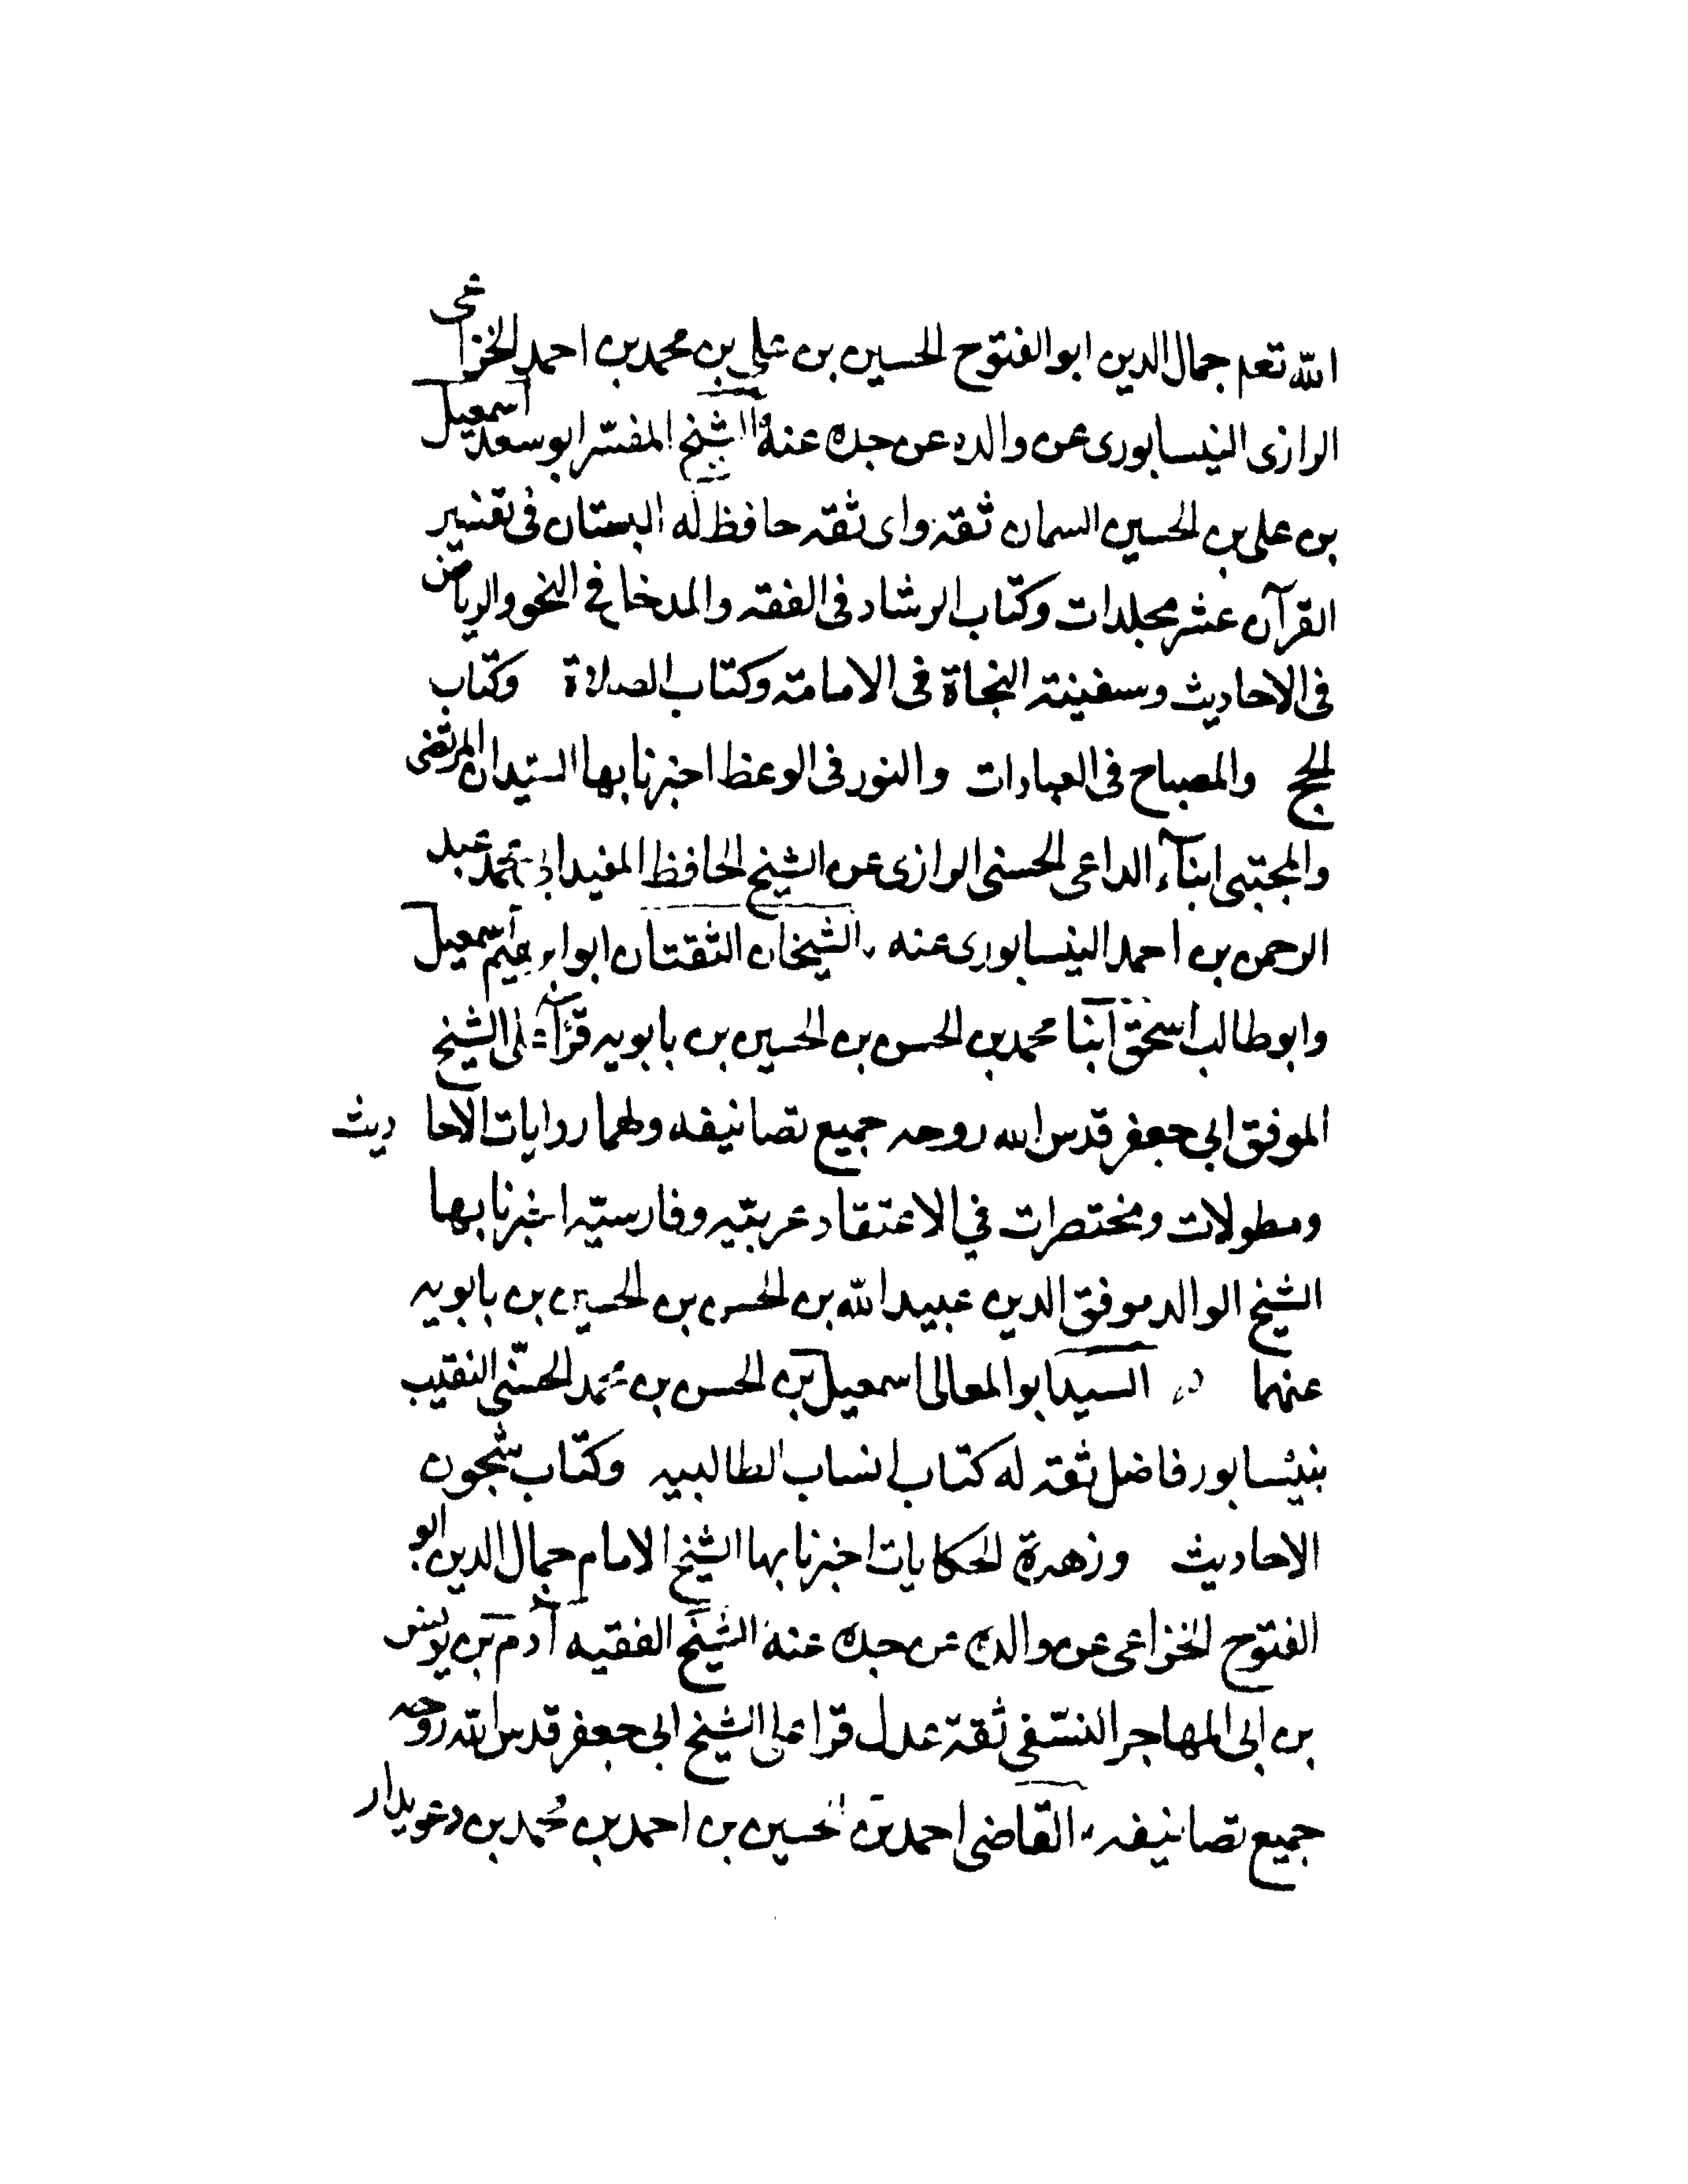 الله تعم جمال الدين ابو الفتوح الحسين بن على بن محمد بن احمد الخزاعى
الرازى النيسابورى عن والده عن جده عنه الشيخ المفسّر ابو سعد اسمعيل
بن على بن الحسين السمان ثقة واى ثقة حافظ له البستان فى تفسير
القرآن عشر مجلدات وكتاب الرشاد فى الفقه والمدخل فى النحو والرياض
فى الاحاديث وسفينة النجاة فى الامامة وكتاب الصلاة وكتاب
الحج والمصباح فى العبادات والنور فى الوعظ اخبرنا بها السّيدان المرتضى
والمجتبى ابنآء الداعى الحسنى الرازى عن الشيخ الحافظ المفيد ابى محمد عبد
الرحمن بن احمد النيسابورى عنه الشيخان الثقتان ابو ابرهيم اسمعيل
وابو طالب اسحق ابنا محمد بن الحسن بن الحسين بن بابويه قرآء على الشيخ
الموفق ابى جعفر قدس الله روحه جميع تصانيفه ولهما روايات الاحاديث
ومطولات ومختصرات في الاعتقاد عربيّه وفارسيّه اخبرنا بها
الشيخ الوالد موفق الدين عبيد الله بن الحسن بن الحسين بن بابويه
عنهما السيد ابو المعالى اسمعيل بن الحسن بن محمد الحسّنى النقيب
بنيسابور فاضل ثقة له كتاب انساب الطالبيه وكتاب شجون
الاحاديث وزهرة الحكايات اخبرنا بها الشيخ الامام جمال الدين ابو
الفتوح الخزاعى عن والده عن جده عنه الشيخ الفقيه آدم بن يونس
بن ابى المهاجر النسّفى ثقة عدل قرا على الشيخ ابى جعفر قدس الله روحه
جميع تصانيفه القاضى احمد بن الحسين بن احمد بن محمد بن دعويدار